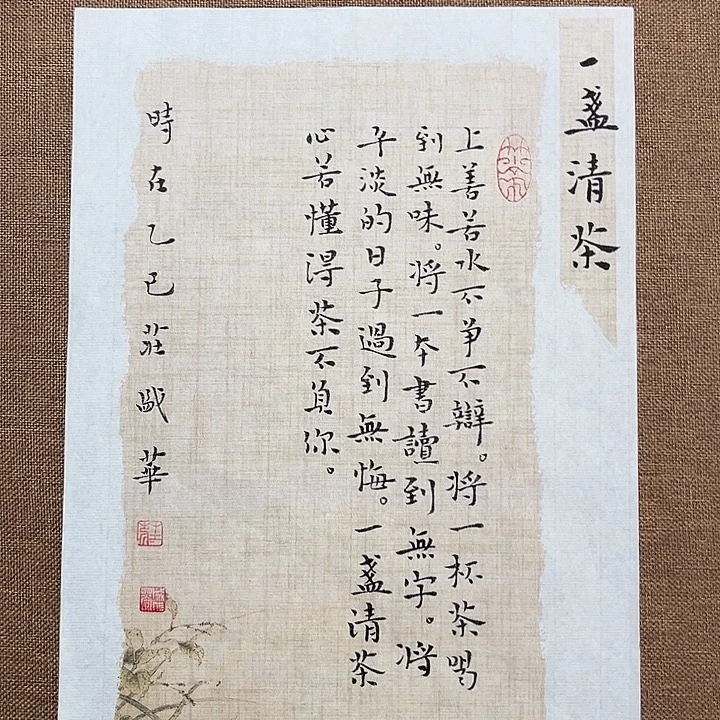 一盞清茶
上善若水不爭不辯。将一杯茶喝
到無味。将一本書讀到無字。将
平淡的日子過到無悔。一盞清茶
心若懂得茶不負你。
時在乙巳莊
華